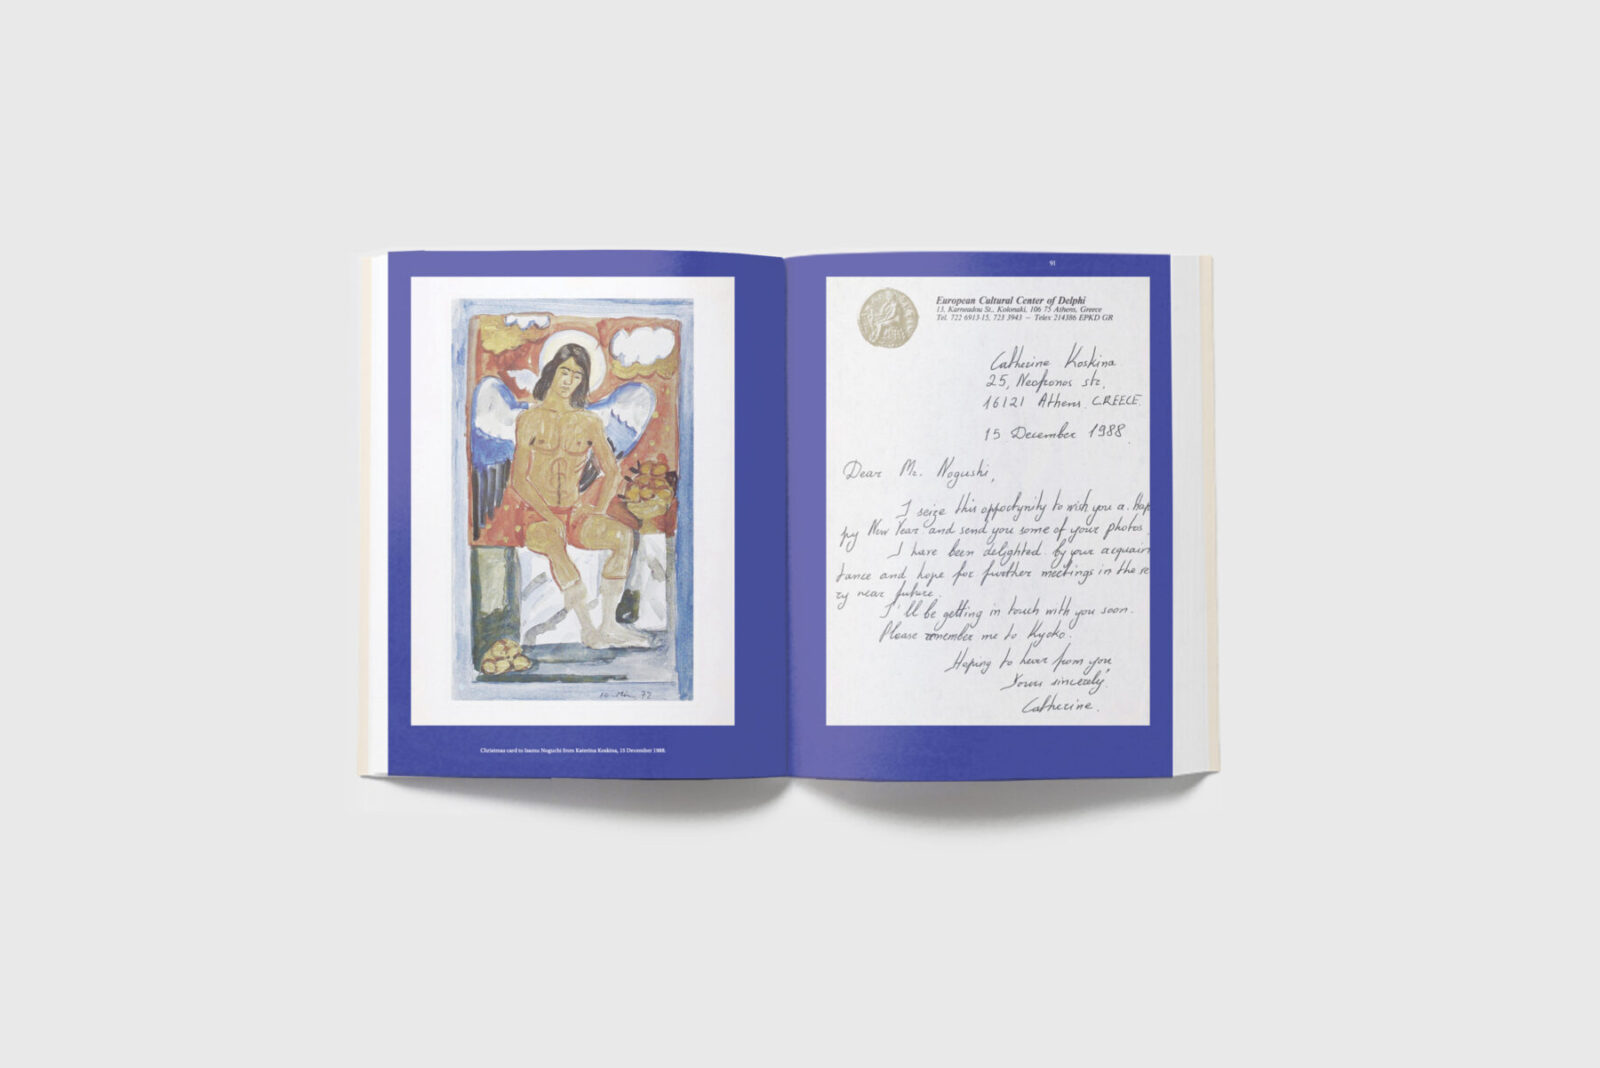 Christmas card to Isamu Noguchi from Katerina Koskina, 15 December 1988.
91
European Cultural Center of Delphi
13, Karneadou St., Kolonaki, 106 75 Athens, Greece
Tel. 722 6913-15, 723 3943 — Telex 214386 EPKD GR
Catherine Koskina
25, Neofronos str,
16121 Athens. GREECE
15 December 1988.
Dear Mr. Nogushi,
I seize this oppotynity to wish you a. Hap
py New Year and send you some of your photos.
I have been delighted by your acquain
tance and hope for further meetings in the ve
ry near future.
I'll be getting in touch with you soon.
Please remember me to Kyoko.
Hoping to hear from you
Yours sincerely
Catherine.
72